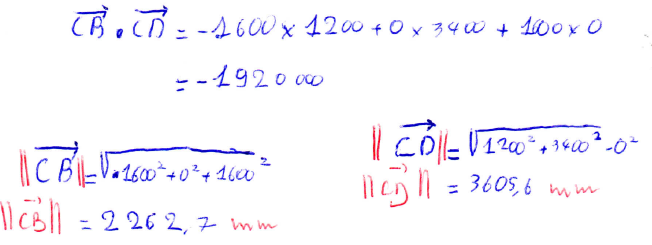 CB . CD = -1600 x 1200 + 0 x 3400 + 1600 x 0
= -1920 000
||CB|| = √-1600² + 0² + 1600²
||CB|| = 2262,7 mm
||CD|| = √1200² + 3400² - 0²
||CD|| = 3605,6 mm